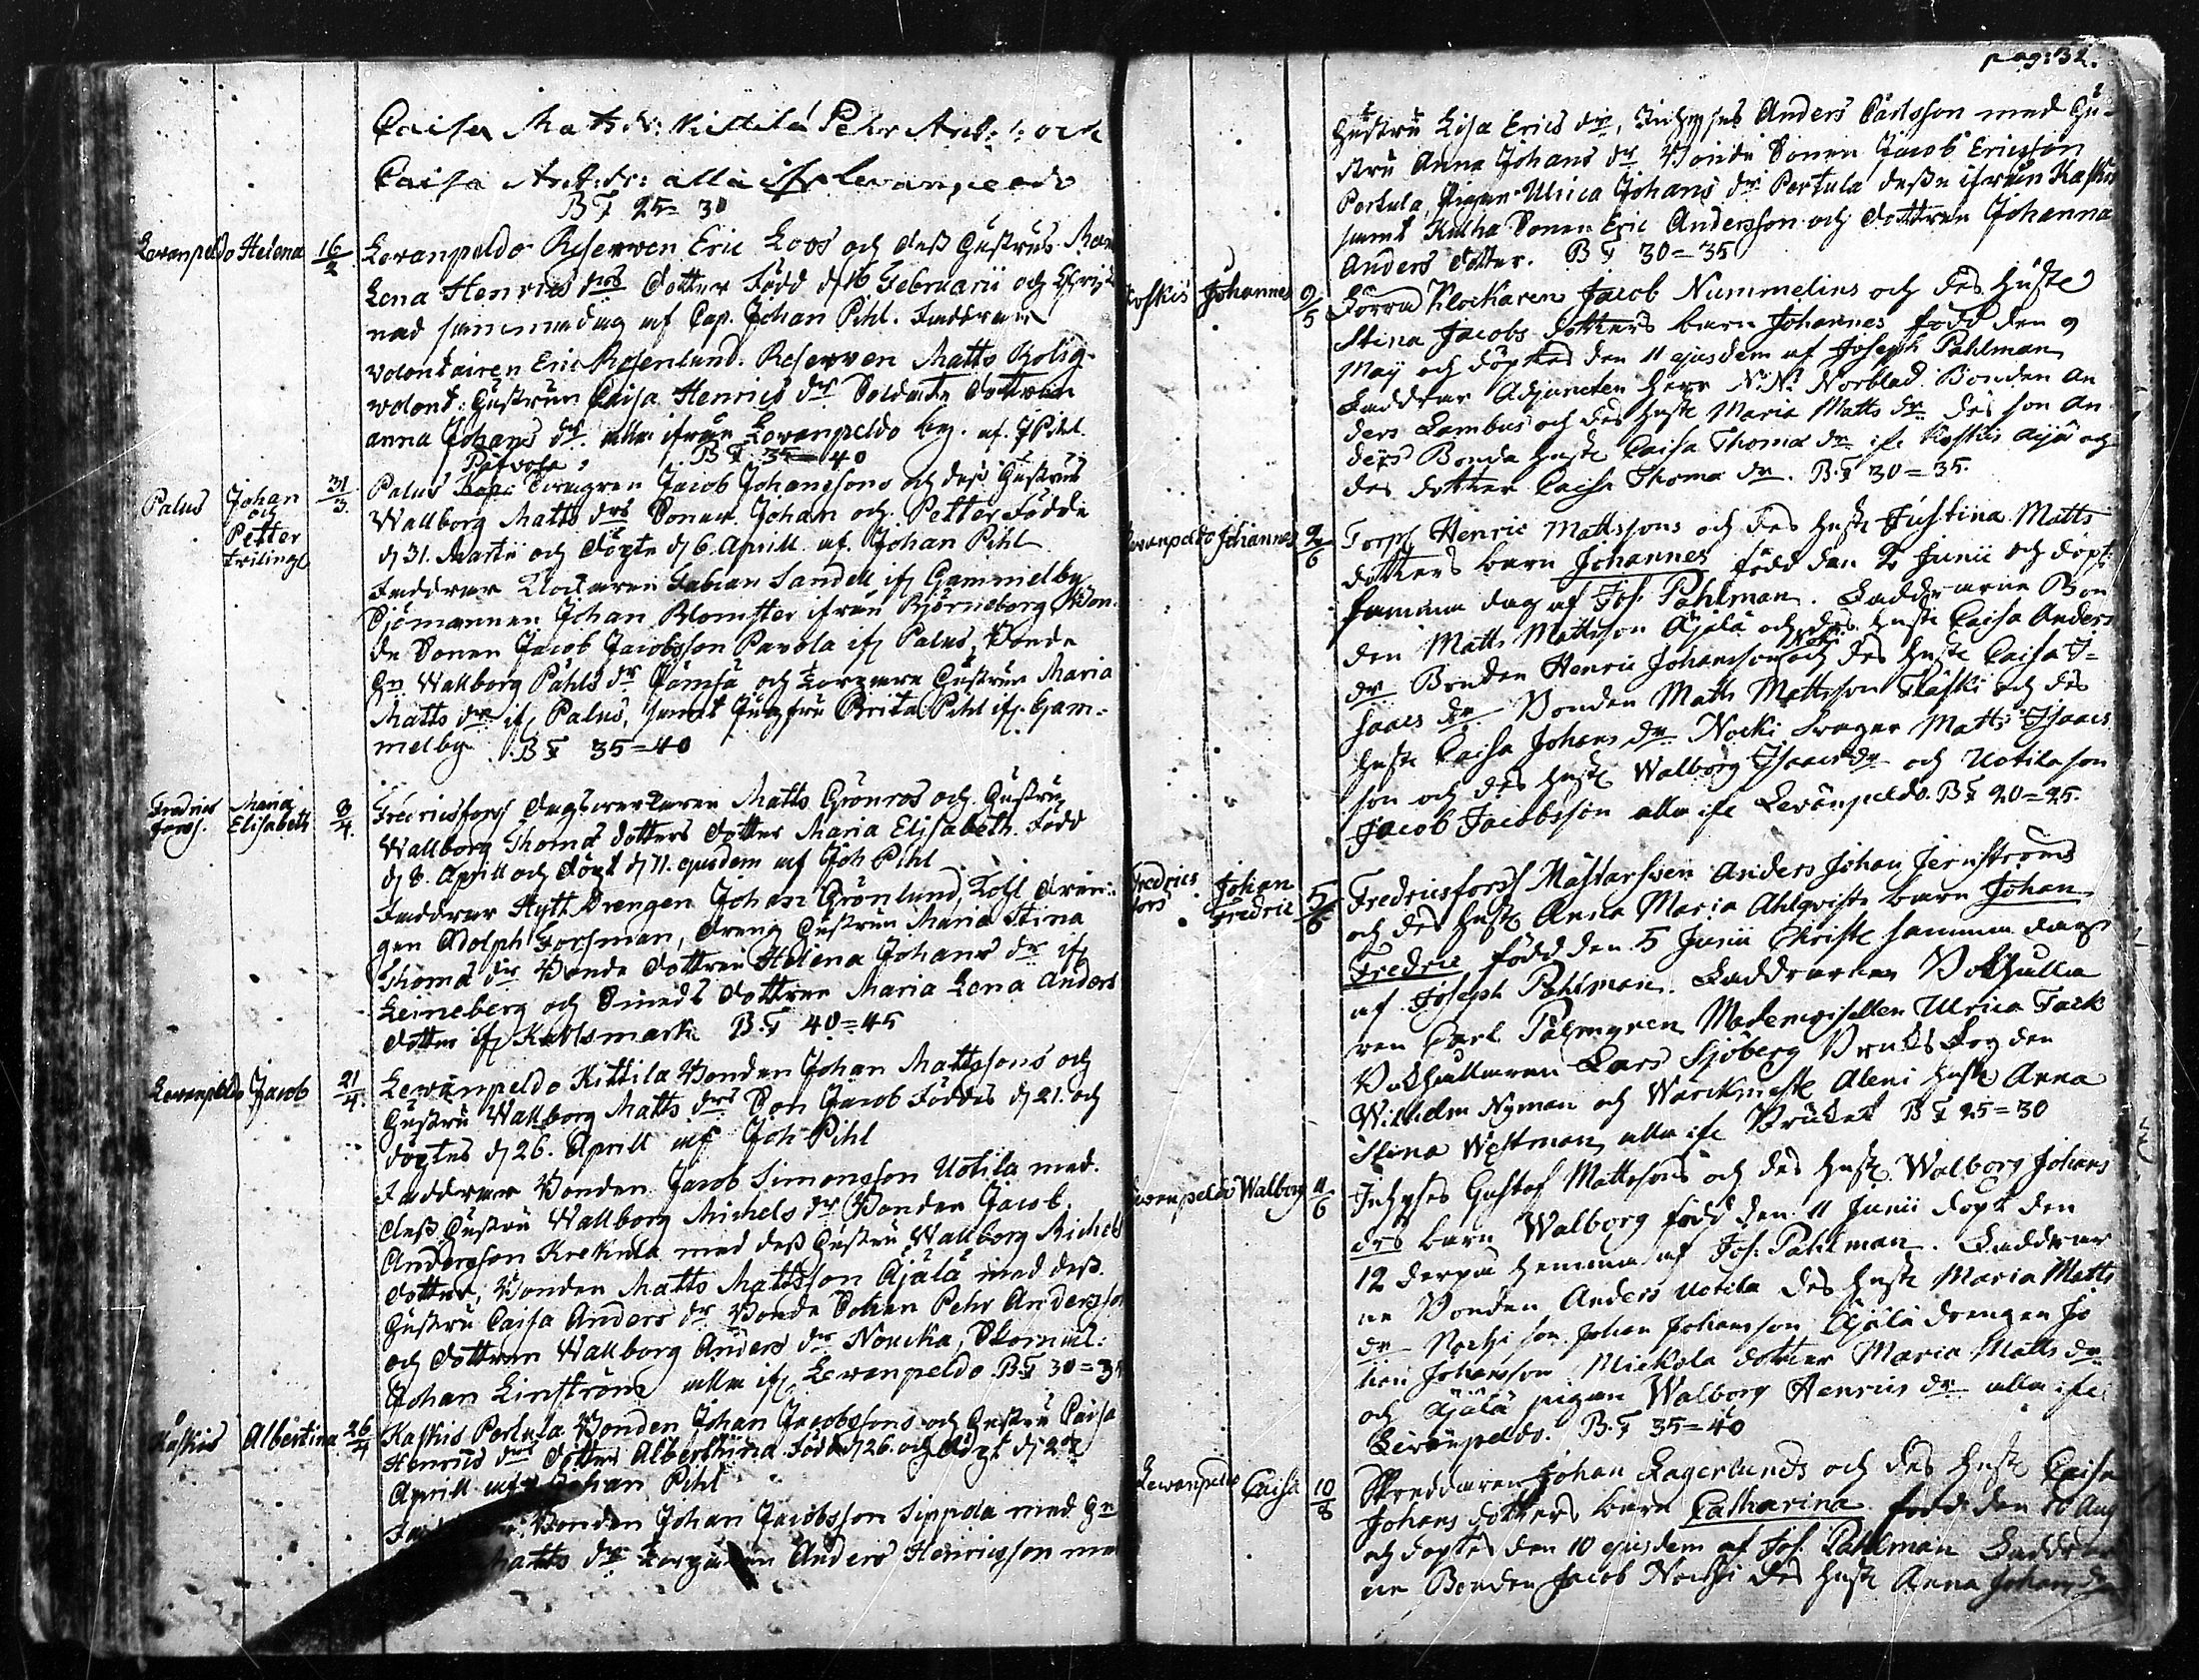 Caisa Matts dr: Kittilä Pehr And: s: och
Caisa And: dr: alla ifr Lewanpeldo
B T 25=30
Lewanpeldo Helena 16/2 Lewanpeldo Reserven Eric Loos och dess Hustrus
Lena Henrics drs dotter Född d 16 Februarii och Christ
nad samma dag af Cap. Johan Pihl. Faddrar
volontairen Eric Rosenlund. Reserven Matts Rolig
volont: Hustrun Caisa Henrics dr Soldate dottren
anna Johans dr alla ifrån Lewanpeldo beg. af J Pihl.
B T. 35=40
Palus Johan och Petter tvilingar 31/3 Palus Drengen Jacob Johanssons och dess Hustrus
Wallborg Matts drs Söner Johan och Petter Födde
d 31. Martii och döpte d 6. Aprill af Johan Pihl
Faddrar Klockaren Fabian Sandell ifr Gammelby
Sjömannen Johan Blomster ifrån Björneborg Bon-
de Sonen Jacob Jacobsson Pavola ifr Palus, Bonde
Hn Wallborg Påhls dr Sämsä och Torpare Hustrun Maria
Matts dr ifr Palus, samt Jungfru Brita Pihl ifr Gam-
melby. B T 35=40
Fredrics forss. Maria Elisabeth 8/4. Fredricsforss dagsverkaren Matts Grönros och Hustru
Wallborg Thomæ dotters dotter Maria Elisabeth. Född
d 8. Aprill och döpt d 11. ejusdem af Joh Pihl
Faddrar Hytt Drengen Johan Grönlund, Kohl dren-
gen Adolph Forsman, dreng Hustrun Maria Stina
Thomæ dr Bonde dottren Helena Johans dr ifr
Leineberg och Smeds dottren Maria Lena Anders
dotter ifr Kattsmark B.T 40=45
Lewanpeldo Jacob 21/4. Lewanpeldo Kittila Bonden Johan Mattssons och
Hustru Wallborg Matts drs Son Jacob Föddes d 21. och
döptes d 26. Aprill af Joh Pihl
Faddrar Bonden Jacob Simonsson Uotila med
dess Hustru Wallborg Michels dr Bonden Jacob
Andersson Krekula med dess Hustru Wallborg Michels
dotter, Bonden Matts Mattsson Äjälä med dess
Hustru Caisa Anders dr Bonde Sonen Pehr Andersson
och dottren Wallborg Anders dr Noucka, Skomak:
Johan Linström alla ifr Lewanpeldo B.T 30=35
Kaskis Albertina 26/4 Kaskis Pertula Bonden Johan Jacobssons och Hustru Caisa
Henrics drs dotter Alberthina Född d 26. och döpt d 27
Aprill af Johan Pihl
Bonden Johan Jacobsson Sippola med Hn
Matts dr Torparen Anders Henricsson med
pag: 32.
Hustru Lisa Erics dr, Inhyses Anders Carlsson med Hu-
stru Anna Johans dr Bonde Sonen Jacob Ericsson
Pertula, Pigan Ulrica Johans dr Pertula desse ifrån Kaskis
samt Sonen Eric Andersson och dottren Johanna
Anders dotter. B T 30=35
Koskis Johannes 9/5 Förra Klockaren Jacob Nummelins och des Hustr
Stina Jacobs dotters barn Johannes född den 9
Maij och döptes den 11 ejusdem af Joseph Pahlman
Faddrar Adjuncten Herr N.N. Norblad. Bonden An
ders Lambus och des Hustr Maria Matts dr des son An
ders Bonde Hustr Caisa Thomæ dr ifr Koskis och
des dotter Caisa Thomæ dr. B.T 30=35.
Lewanpeldo Johannes 2/6 Torp. Henric Mattssons och des Hustr Justina Matts
dotters barn Johannes född den 2 Junii och döpt
samma dag af Jos. Pahlman. Faddrarne Bon
den Matts Mattsson Äjälä och des Hustr Caisa Anders
dr Bonden Henric Johansson och des Hustr Caisa I=
saacs dr Bonden Matts Mattsson och des
Hustr Caisa Johans dr Nocki Svager Matts Isaacs
son och des Hustr Walborg Isaacs dr och Uotila son
Jacob Jacobsson alla ifr Lewanpeldo. B T 20=25.
Fredrics fors Johan Fredric 5/6 Fredricsforss Mästarsven Anders Johan Jernströms
och des Hustr Anna Maria Ahlqvists barn Johan
Fredric född den 5 Junii Christn samma dag
af Joseph Pahlman. Faddrarne Bokhålla
ren Carl Palmgren Mademoisellen Ulrica Fack
Bokhållaren Lars Sjöberg Bruks Fogden
Wilhelm Nyman och Werckmest Aleni Hustr Anna
Stina Westman alla ifr Bruket B T 25=30
Lewanpeldo Walborg 11/6 Inhyses Gustaf Mattssons och des Hustr Walborg Johans
drs barn Walborg född den 11 Junii döpt den
12 derpå hemma af Jos. Pahlman. Faddrar
ne Bonden Anders Uotila des Hustr Maria Matts
dr Nocki son Johan Johansson Äjälä drengen Jo
han Johansson Mickola dotter Maria Matts dr
och Äjälä pigan Walborg Henrics dr alla ifr
Lewanpeldo. B.T 35=40
Lewanpeldo Caisa 10/8 Skreddaren Johan Lagerlunds och des Hustr Caisa
Johans dotters barn Catharina född den 10 Aug
och döptes den 10 ejusdem af Jos. Pahlman Faddrar
ne Bonden Jacob Nocki des Hustr Anna Johans dr